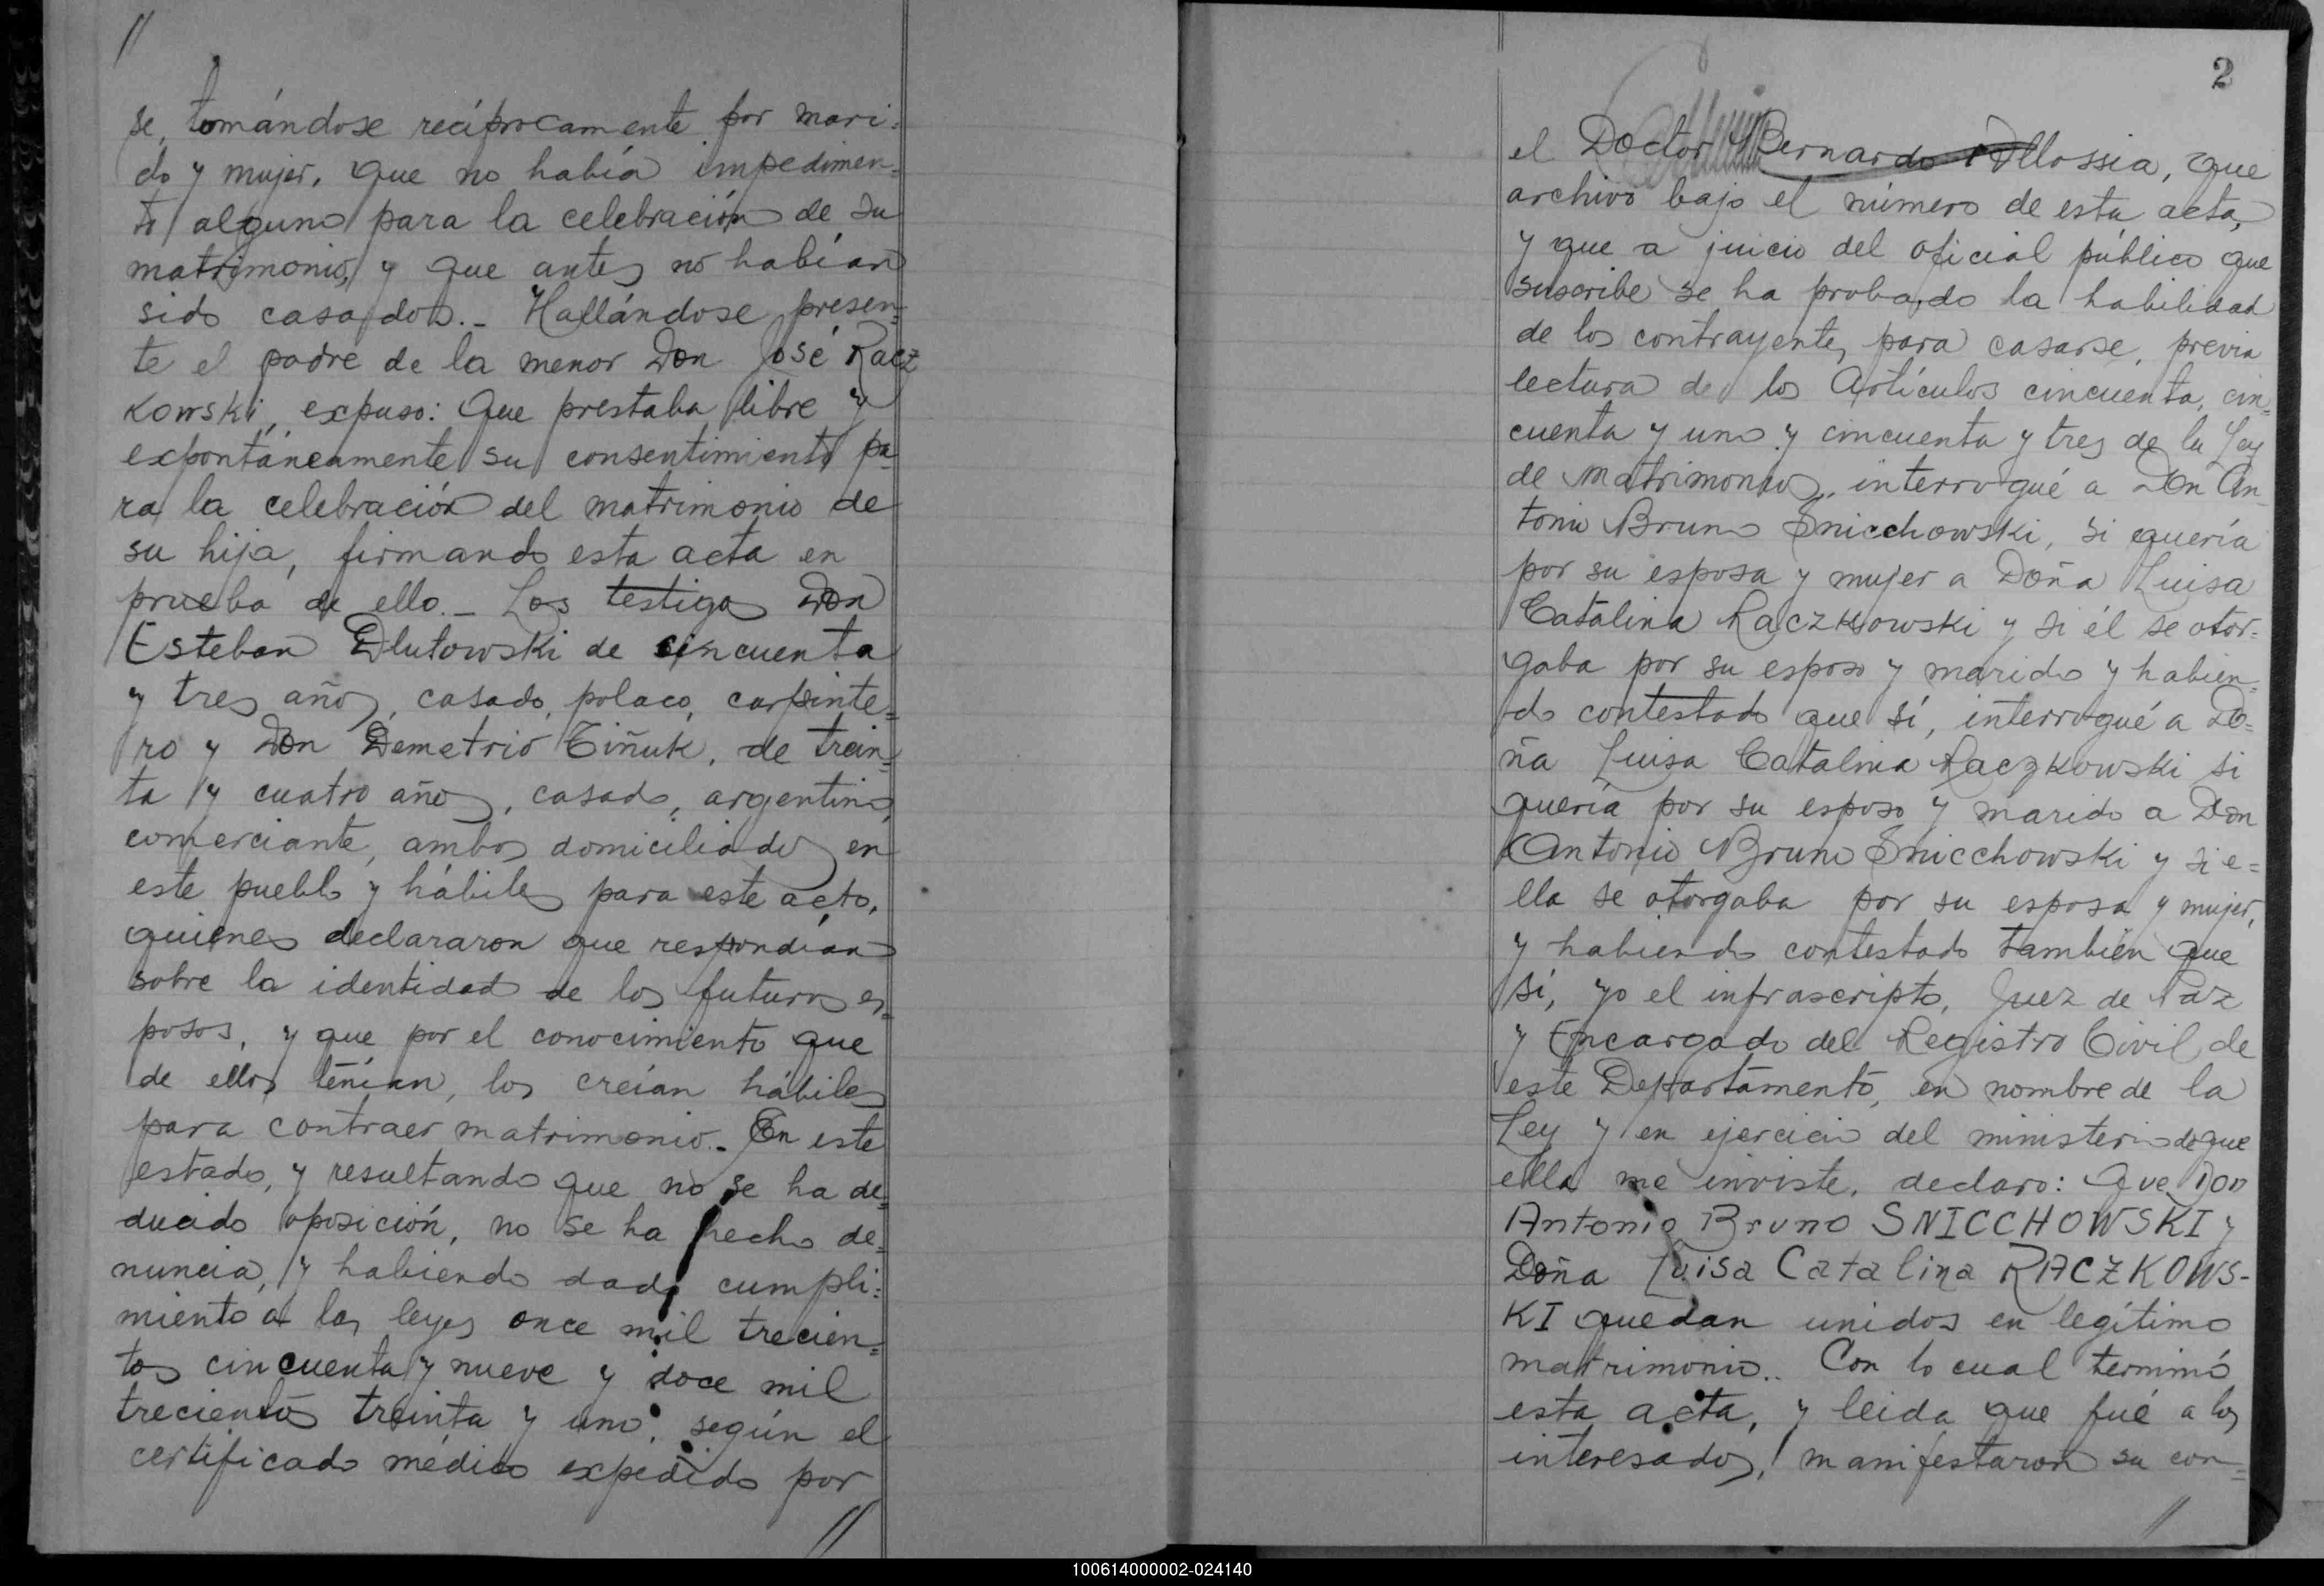 //
se, tomándose recíprocamente por mari=
do y mujer, que no había impedimen=
to alguno para la celebración de su
matrimonio, y que antes no habían
sido casados.- Hallándose presen=
te el padre de la menor Don José Racz
kowski, expuso: Que prestaba libre y
expontáneamente su consentimiento pa=
ra la celebración del matrimonio de
su hija, firmando esta acta en
prueba de ello.- Los testigos Don
Esteban Dlutowski de cincuenta
y tres años, casado, polaco, carpinte=
ro y Don Demetrio Tiñuk, de trein=
ta y cuatro años, casado, argentino,
comerciante, ambos domiciliados en
este pueblo y hábiles para este acto,
quienes declararon que respondían
sobre la identidad de los futuros es=
posos, y que por el conocimiento que
de ellos tenían, los creían hábiles
para contraer matrimonio.- En este
estado, y resultando que no se ha de=
ducido oposición, no se ha hecho de=
nuncia, y habiendo dado cumpli=
miento a las leyes once mil trecien=
tos cincuenta y nueve y doce mil
trecientos treinta y uno, según el
certificado médico expedido por
//
2
el Doctor Bernardo Allossia, que
archivo bajo el número de esta acta,
y que a juicio del oficial público que
suscribe se ha probado la habilidad
de los contrayentes para casarse, previa
lectura de los Artículos cincuenta, cin=
cuenta y uno y cincuenta y tres de la Ley
de Matrimonio, interrogué a Don An=
tonio Bruno Snicchowski, si quería
por su esposa y mujer a Doña Luisa
Catalina Raczkowski y si él se otor=
gaba por su esposo y marido y habien=
do contestado que sí, interrogué a Do=
ña Luisa Catalina Raczkowski si
quería por su esposo y marido a Don
Antonio Bruno Snicchowski y si e=
lla se otorgaba por su esposa y mujer,
y habiendo contestado también que
sí, yo el infrascripto, Juez de Paz
y Encargado del Registro Civil de
este Departamento, en nombre de la
Ley y en ejercicio del ministerio de que
ella me inviste, declaro: Que Don
Antonio Bruno SNICCHOWSKI y
Doña Luisa Catalina RACZKOWS-
KI quedan unidos en legítimo
matrimonio.. Con lo cual terminó
esta acta, y leida que fué a los
interesados, manifestaron su con=
//
100614000002-024140